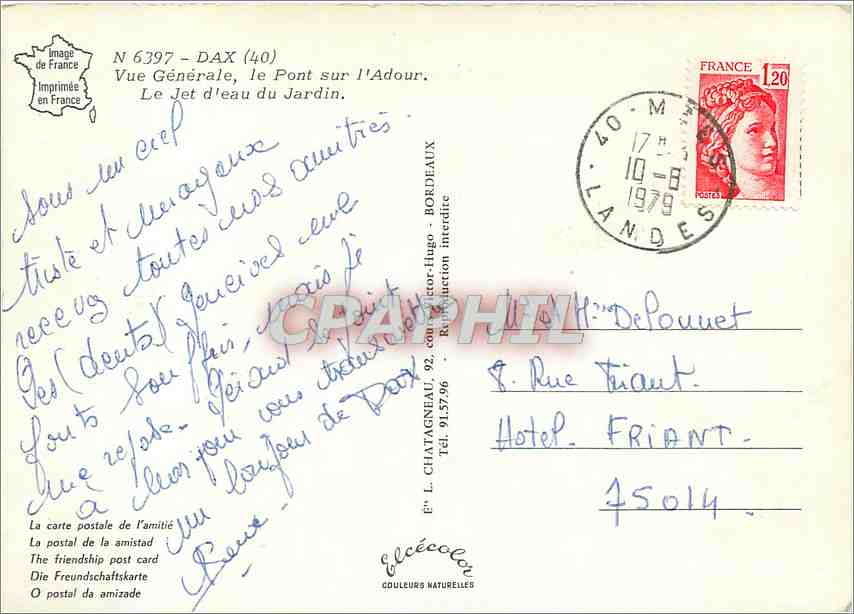 Image
de France
Imprimée
en France
N 6397 - DAX (40)
Vue Générale, le Pont sur l'Adour.
Le Jet d'eau du Jardin.
FRANCE 1,20
POSTES
40 - M
17 H
10-8
1979
LANDES
sous un ciel
triste et nuageux
recevez toutes nos amitiés.
Les (dents) gencives me
font souffrir, mais je
me repose. Gérard se joint
à moi pour vous transmettre
un bonjour de DAX
La carte postale de l'amitié
La postal de la amistad
The friendship post card
Die Freundschaftskarte
O postal da amizade
Eˢ L. CHATAGNEAU, 92, cours Victor-Hugo - BORDEAUX
Tél. 91.57.96 - Reproduction interdite
CPAPHIL
Elcécolor
COULEURS NATURELLES
Mr et Mme DePonnet
8. Rue Friant.
Hotel. FRIANT.
75014.